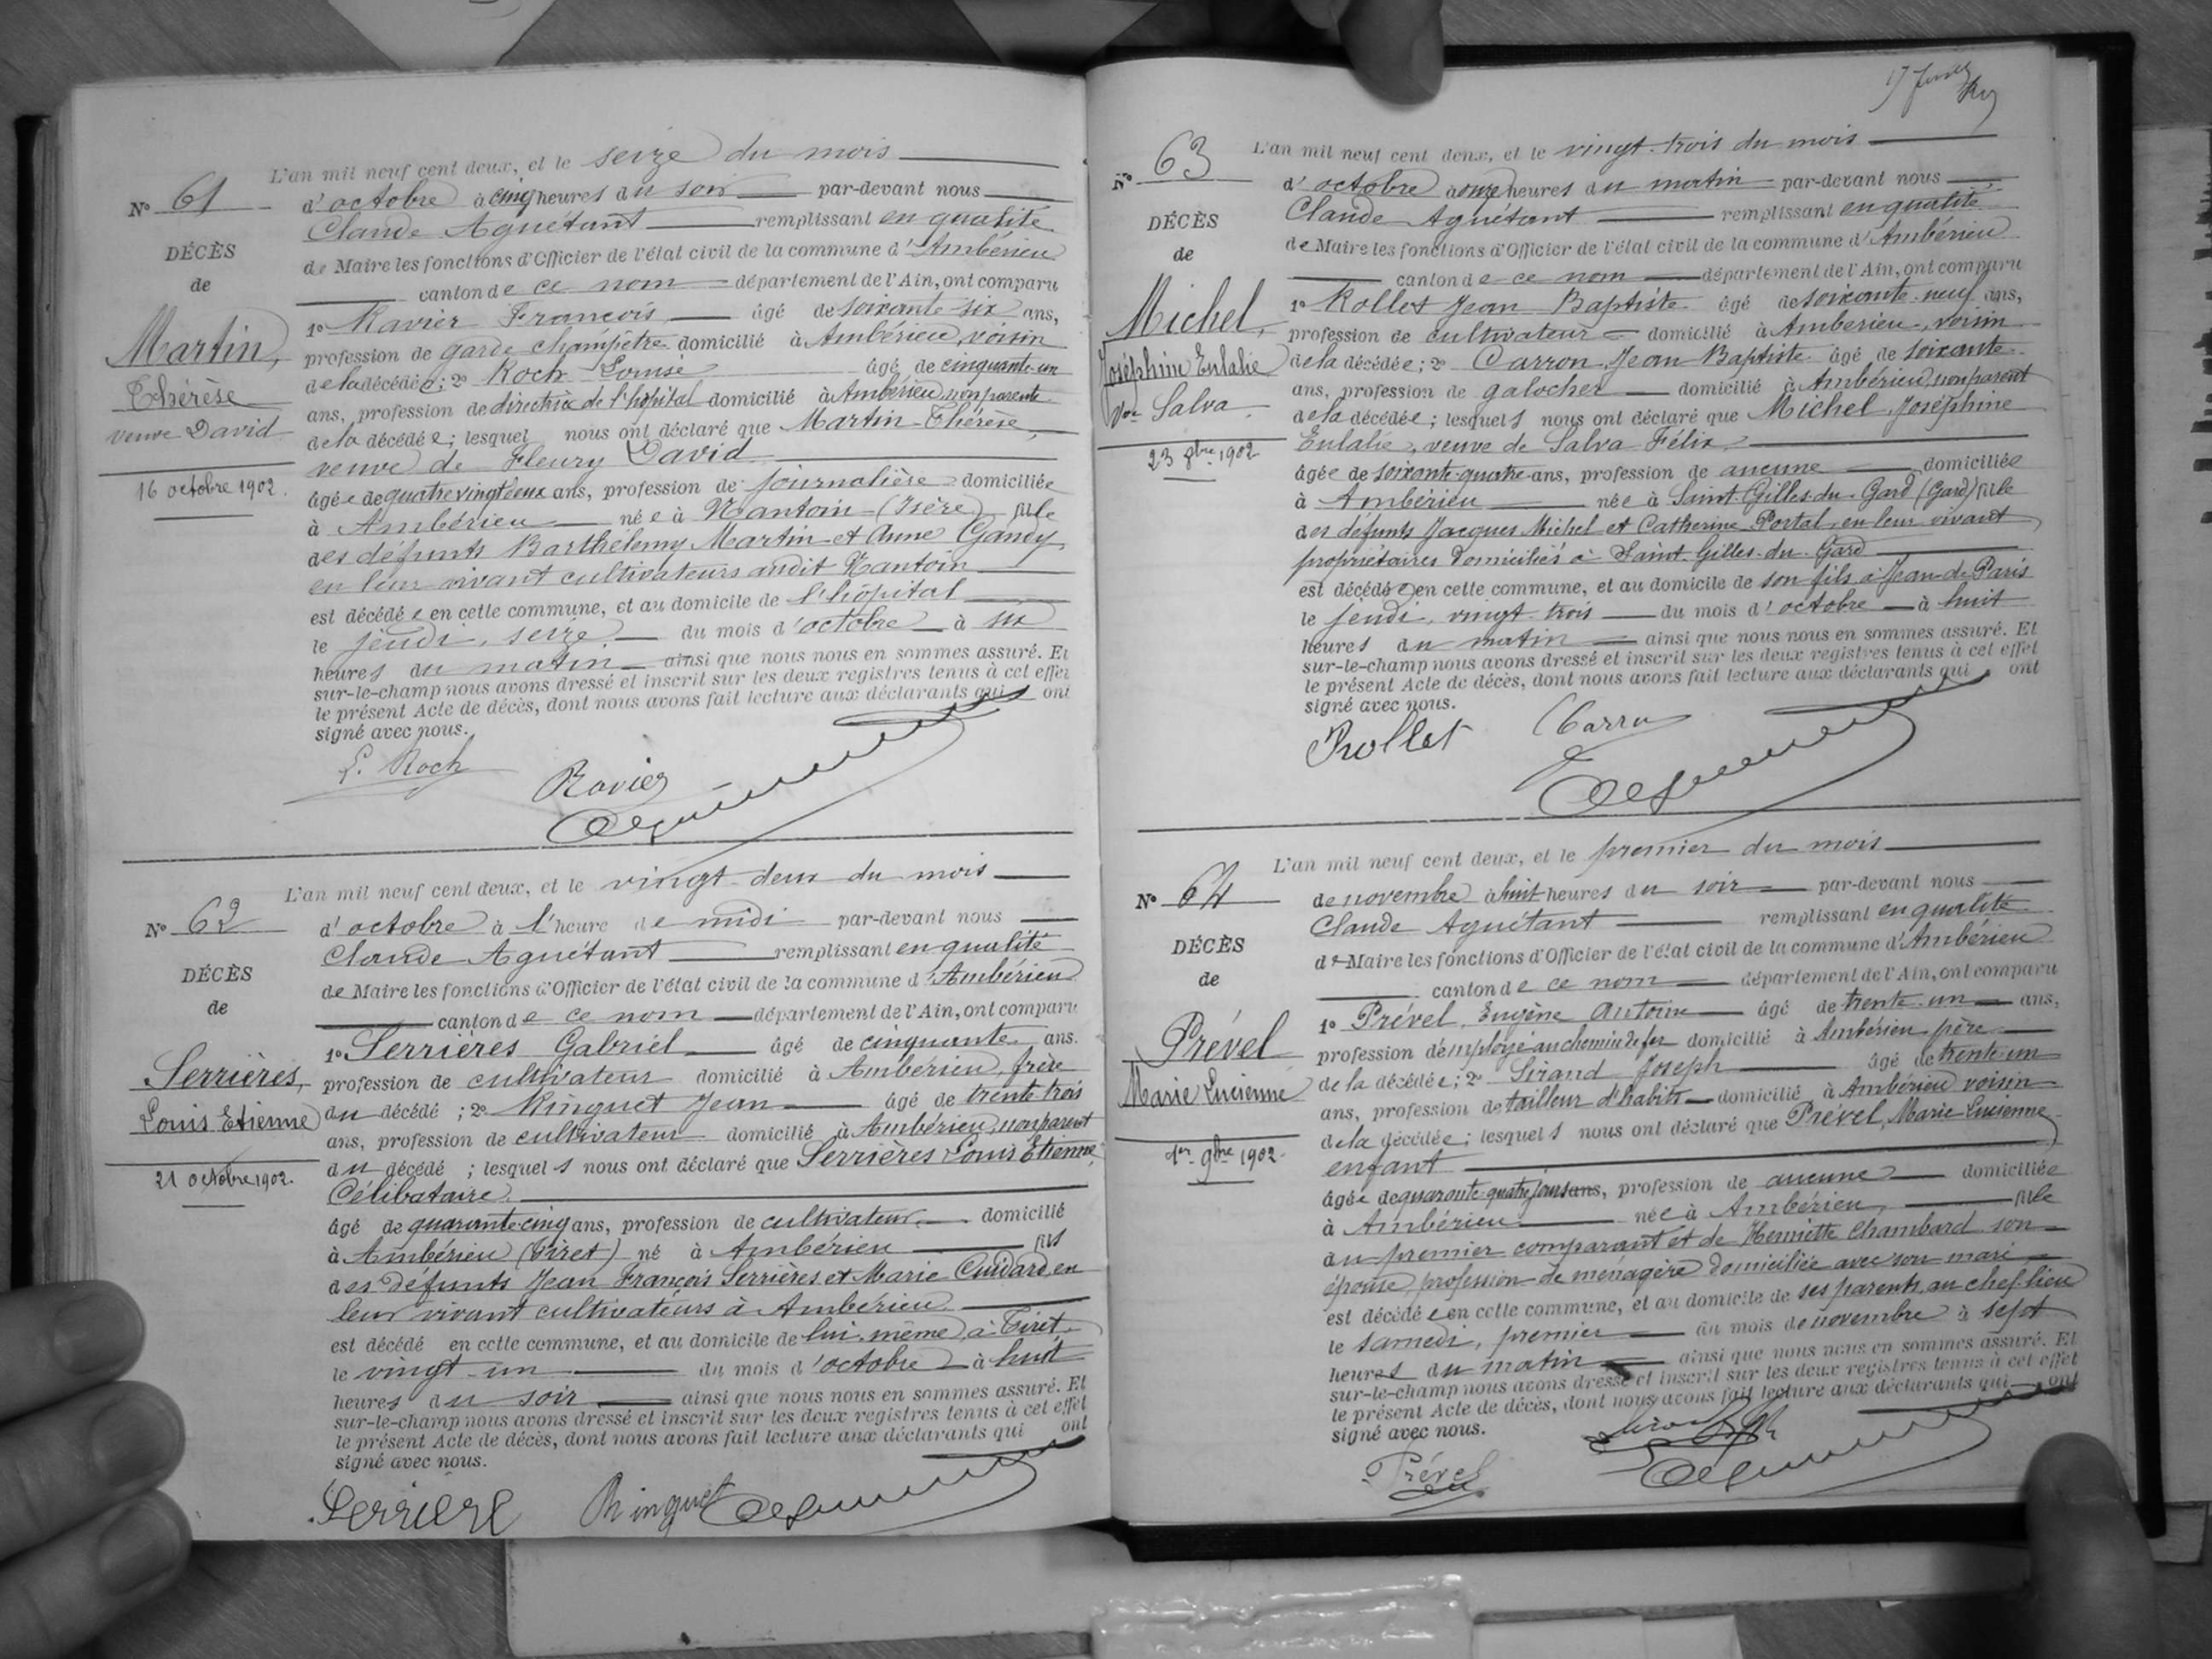 L'an mil neuf cent deux, et le seize du mois
N° 61
d'octobre à cinq heures du soir par-devant nous
Claude Aguétant remplissant en qualité
DÉCÈS
de Maire les fonctions d'Officier de l'état civil de la commune d'Ambérieu
de
canton de ce nom département de l'Ain, ont comparu
Martin,
1° Ravier François âgé de soixante-six ans,
profession de garde champêtre domicilié à Ambérieu, voisin
Thérèse
de la décédée; 2° Roch Louise âgé de cinquante-un
ans, profession de directrice de l'hôpital domicilié à Ambérieu, non parente
veuve David
de la décédée; lesquel nous ont déclaré que Martin Thérèse,
veuve de Fleury David
16 octobre 1902.
âgée de quatre vingt deux ans, profession de journalière domiciliée
à Ambérieu née à Nantoin (Isère) fille
des défunts Barthélemy Martin et Anne Gandy
en leur vivant cultivateurs audit Nantoin
est décédée en cette commune, et au domicile de l'hôpital
le jeudi, seize du mois d'octobre à six
heures du matin ainsi que nous nous en sommes assuré. Et
sur-le-champ nous avons dressé et inscrit sur les deux registres tenus à cet effet
le présent Acte de décès, dont nous avons fait lecture aux déclarants qui ont
signé avec nous.
L. Roch
Ravier
L'an mil neuf cent deux, et le vingt-deux du mois
N° 62
d'octobre à l'heure de midi par-devant nous
Claude Aguétant remplissant en qualité
DÉCÈS
de Maire les fonctions d'Officier de l'état civil de la commune d'Ambérieu
de
canton de ce nom département de l'Ain, ont comparu
1° Serrières Gabriel âgé de cinquante ans.
Serrières,
profession de cultivateur domicilié à Ambérieu, frère
Louis Etienne
du décédé ; 2° Ringuet Jean âgé de trente trois
ans, profession de cultivateur domicilié à Ambérieu, non parent
21 octobre 1902.
du décédé ; lesquels nous ont déclaré que Serrières Louis Etienne,
Célibataire.
âgé de quarante cinq ans, profession de cultivateur, domicilié
à Ambérieu (Tiret) né à Ambérieu fils
des défunts Jean François Serrières et Marie Cuidard, en
leur vivant cultivateurs à Ambérieu
est décédé en cette commune, et au domicile de lui-même, à Tiret
le vingt-un du mois d'octobre à huit
heures du soir ainsi que nous nous en sommes assuré. Et
sur-le-champ nous avons dressé et inscrit sur les deux registres tenus à cet effet
le présent Acte de décès, dont nous avons fait lecture aux déclarants qui ont
signé avec nous.
Serriere Ringuet
L'an mil neuf cent deux, et le vingt-trois du mois
N° 63
d'octobre à onze heures du matin par-devant nous
Claude Aguétant remplissant en qualité
DÉCÈS
de Maire les fonctions d'Officier de l'état civil de la commune d'Ambérieu
de
canton de ce nom département de l'Ain, ont comparu
Michel,
1° Rollet Jean Baptiste âgé de soixante-neuf ans,
profession de cultivateur domicilié à Ambérieu, voisin
Joséphine Eulalie
de la décédée; 2° Carron Jean Baptiste âgé de soixante
ans, profession de galocher domicilié à Ambérieu, non parent
Vve Salva.
de la décédée; lesquels nous ont déclaré que Michel Joséphine
Eulalie, veuve de Salva Félix,
23 8bre 1902.
âgée de soixante-quatre ans, profession de aucune domiciliée
à Ambérieu née à Saint-Gilles-du-Gard (Gard) fille
des défunts Jacques Michel et Catherine Portal, en leur vivant
propriétaires domiciliés à Saint-Gilles-du-Gard
est décédée en cette commune, et au domicile de son fils à Jean-de-Paris
le jeudi, vingt-trois du mois d'octobre à huit
heures du matin ainsi que nous nous en sommes assuré. Et
sur-le-champ nous avons dressé et inscrit sur les deux registres tenus à cet effet
le présent Acte de décès, dont nous avons fait lecture aux déclarants qui ont
signé avec nous.
Rollet
L'an mil neuf cent deux, et le premier du mois
N° 64
de novembre à huit heures du soir par-devant nous
Claude Aguétant remplissant en qualité
DÉCÈS
de Maire les fonctions d'Officier de l'état civil de la commune d'Ambérieu
de
canton de ce nom département de l'Ain, ont comparu
Prével
1° Prével, Eugène Antoine âgé de trente-un ans,
profession d'employé au chemin de fer domicilié à Ambérieu père
Marie Lucienne
de la décédée; 2° Sirand Joseph âgé de trente-un
ans, profession de tailleur d'habits domicilié à Ambérieu voisin
1er 9bre 1902.
de la décédée; lesquels nous ont déclaré que Prével, Marie Lucienne
enfant
âgée de quarante-quatre jours ans, profession de aucune domiciliée
à Ambérieu née à Ambérieu, fille
du premier comparant et de Henriette Chambard son
épouse, profession de ménagère domiciliée avec son mari
est décédée en cette commune, et au domicile de ses parents, au chef-lieu
le samedi, premier du mois de novembre à sept
heures du matin ainsi que nous nous en sommes assuré. Et
sur-le-champ nous avons dressé et inscrit sur les deux registres tenus à cet effet
le présent Acte de décès, dont nous avons fait lecture aux déclarants qui ont
signé avec nous.
Prével